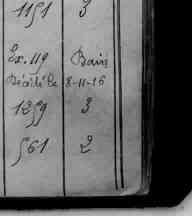 1151 3
Ex. 119 Bain
Décédé le 8-11-16
1259 3
561 2